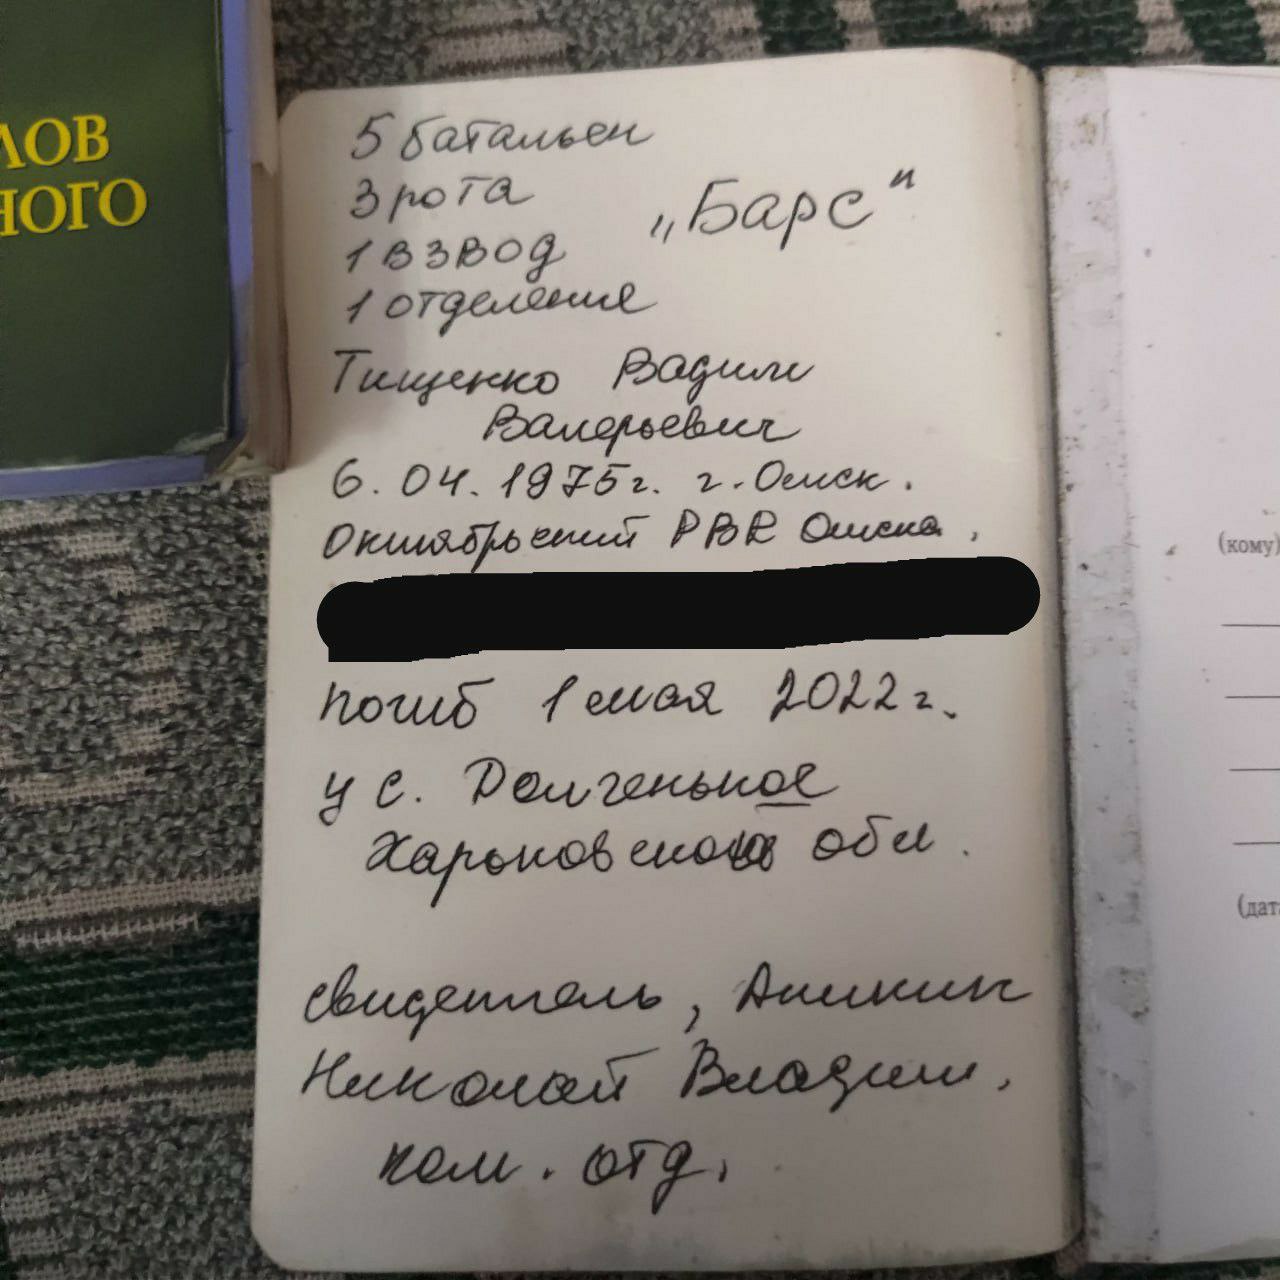 ЛОВ
НОГО
5 батальен
3 рота
„Барс"
1 взвод
1 отделения
Тищенко Вадим
Валерьевич
6.04.1975г. г. Омск.
Октябрьский РВК Омска.
погиб 1 мая 2022г.
у с. Долгенькое
Харьковской обл.
свидетель, Аникин
Николай Владим.
ком. отд.
(кому)
(дат